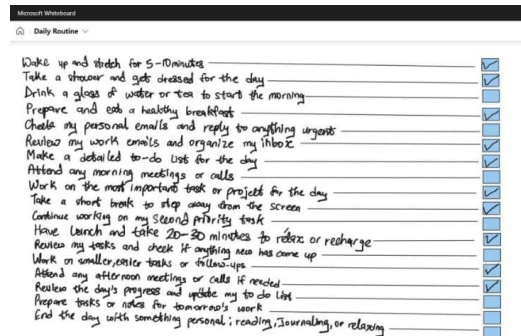 Microsoft Whiteboard
Daily Routine
Wake up and stretch for 5-10 minutes
Take a shower and get dressed for the day
Drink a glass of water or tea to start the morning
Prepare and eat a healthy breakfast
Check my personal emails and reply to anything urgent
Review my work emails and organize my inbox
Make a detailed to-do list for the day
Attend any morning meetings or calls
Work on the most important task or project for the day
Take a short break to step away from the screen
Continue working on my second priority task
Have lunch and take 20-30 minutes to relax or recharge
Review my tasks and check if anything new has come up
Work on smaller, easier tasks or follow-ups
Attend any afternoon meetings or calls if needed
Review the day's progress and update my to do list
Prepare tasks or notes for tomorrow's work
End the day with something personal; reading, Journaling, or relaxing